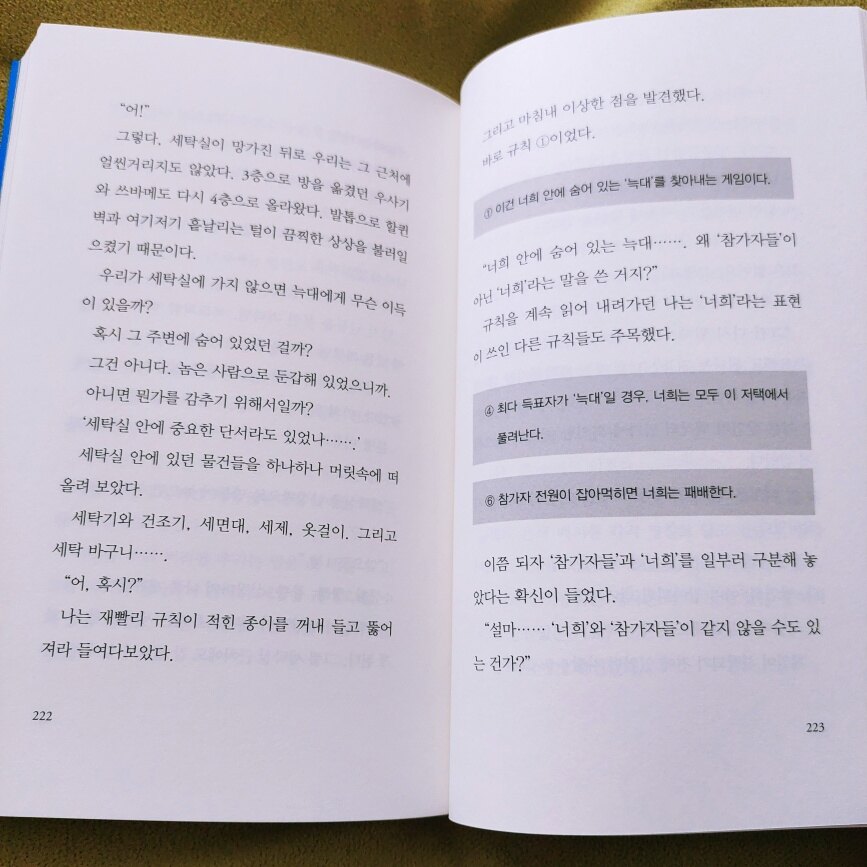 “어!”
그렇다. 세탁실이 망가진 뒤로 우리는 그 근처에
얼씬거리지도 않았다. 3층으로 방을 옮겼던 우사기
와 쓰바메도 다시 4층으로 올라왔다. 발톱으로 할퀸
벽과 여기저기 흩날리는 털이 끔찍한 상상을 불러일
으켰기 때문이다.
우리가 세탁실에 가지 않으면 늑대에게 무슨 이득
이 있을까?
혹시 그 주변에 숨어 있었던 걸까?
그건 아니다. 놈은 사람으로 둔갑해 있었으니까.
아니면 뭔가를 감추기 위해서일까?
‘세탁실 안에 중요한 단서라도 있었나…….’
세탁실 안에 있던 물건들을 하나하나 머릿속에 떠
올려 보았다.
세탁기와 건조기, 세면대, 세제, 옷걸이. 그리고
세탁 바구니…….
“어, 혹시?”
나는 재빨리 규칙이 적힌 종이를 꺼내 들고 뚫어
져라 들여다보았다.
222
그리고 마침내 이상한 점을 발견했다.
바로 규칙 ①이었다.
① 이건 너희 안에 숨어 있는 ‘늑대’를 찾아내는 게임이다.
“너희 안에 숨어 있는 늑대……. 왜 ‘참가자들’이
아닌 ‘너희’라는 말을 쓴 거지?”
규칙을 계속 읽어 내려가던 나는 ‘너희’라는 표현
이 쓰인 다른 규칙들도 주목했다.
④ 최다 득표자가 ‘늑대’일 경우, 너희는 모두 이 저택에서
풀려난다.
⑥ 참가자 전원이 잡아먹히면 너희는 패배한다.
이쯤 되자 ‘참가자들’과 ‘너희’를 일부러 구분해 놓
았다는 확신이 들었다.
“설마…… ‘너희’와 ‘참가자들’이 같지 않을 수도 있
는 건가?”
223